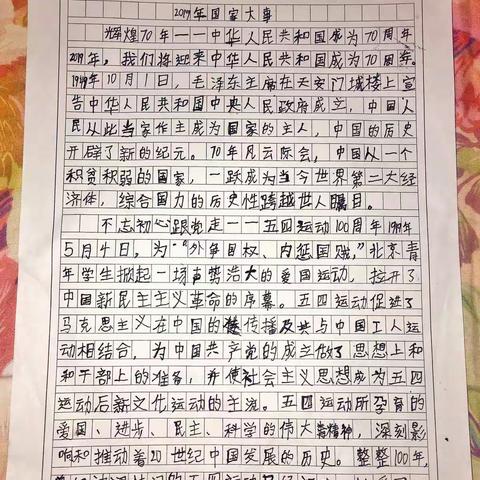 2019年国家大事
辉煌70年一一中华人民共和国成为70周年
2019年，我们将迎来中华人民共和国成为70周年。
1949年10月1日，毛泽东主席在天安门城楼上宣
告中华人民共和国中央人民政府成立，中国人
民从此当家作主成为国家的主人，中国的历史
开辟了新的纪元。70年风云际会，中国从一个
积贫积弱的国家，一跃成为当今世界第二大经
济体，综合国力的历史性跨越世人瞩目。
不忘初心跟党走一一五四运动100周年1919年
5月4日，为“外争国权、内惩国贼，”北京青
年学生掀起一场声势浩大的爱国运动，拉开了
中国新民主主义革命的序幕。五四运动促进了
马克思主义在中国的传播及其与中国工人运
动相结合，为中国共产党的成立做了思想上和
和干部上的准备，并使社会主义思想成为五四
运动后新文化运动的主流。五四运动所孕育的
爱国、进步、民主、科学的伟大精神，深刻影
响和推动着20世纪中国发展的历史。整整100年，